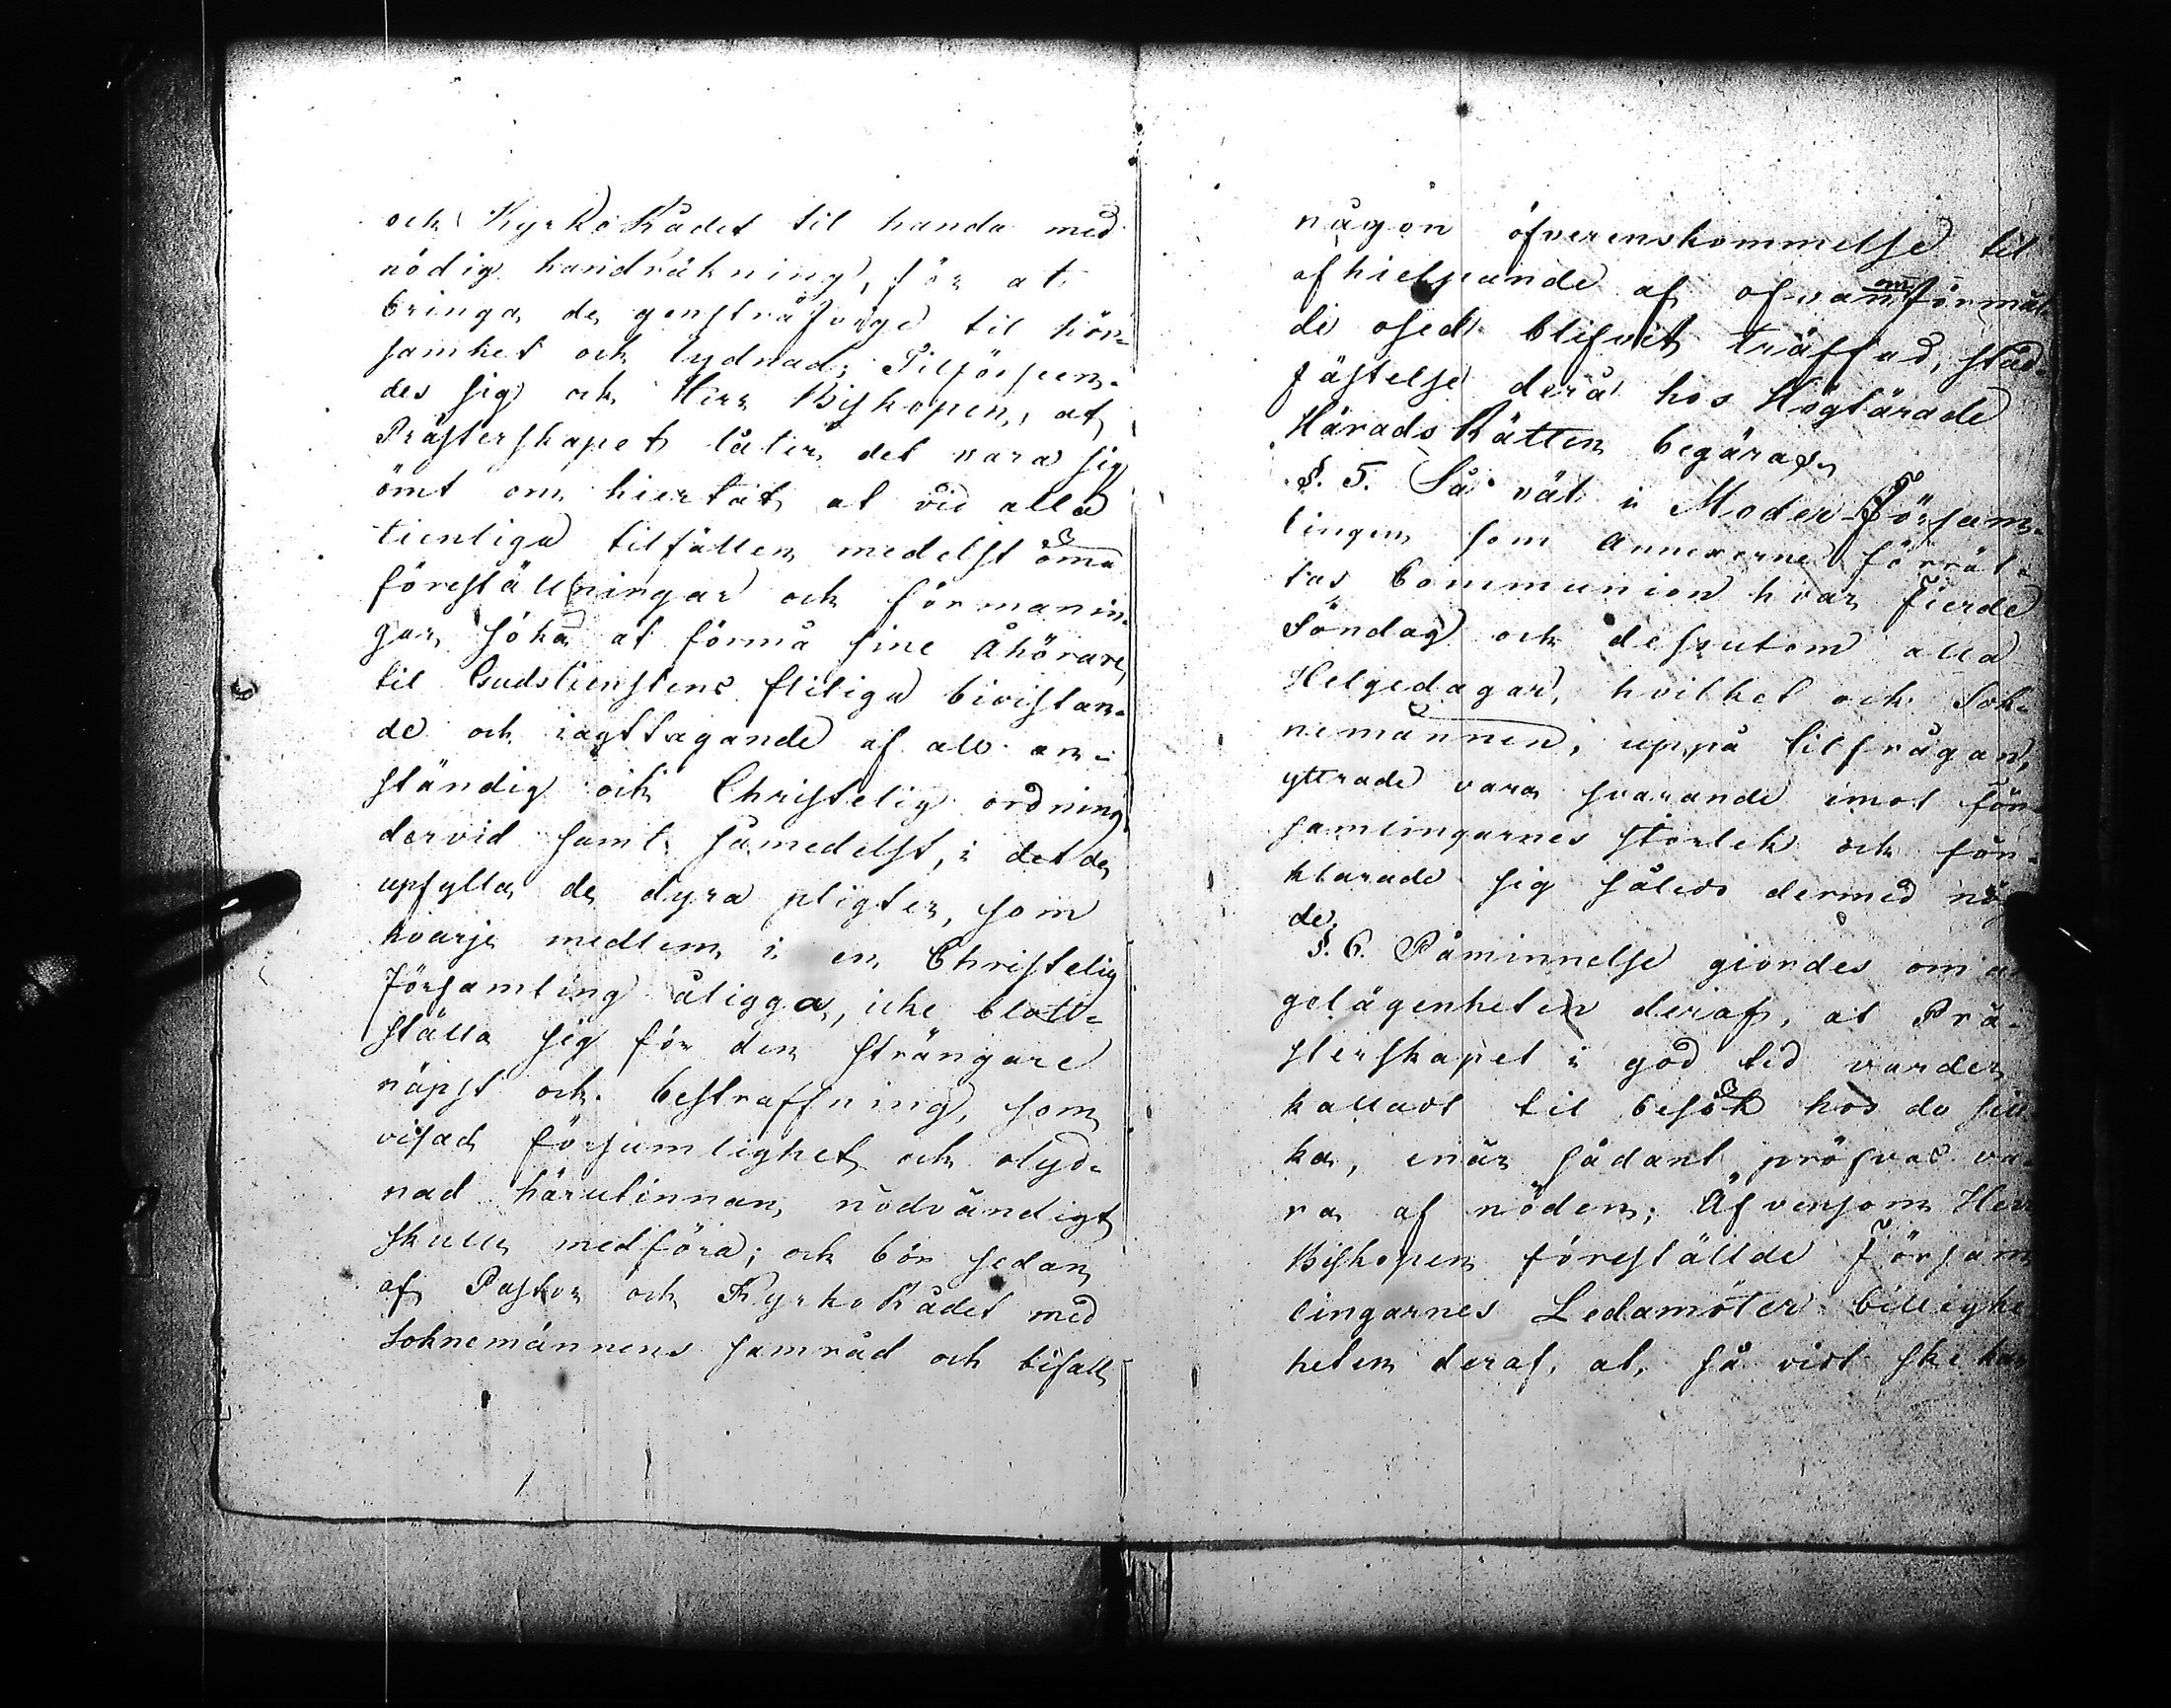 och KyrkoRådet til handa med
nödig handräkning, för at
bringa de genstråfvoge til hör-
samhet och lydnad; Tilförseen-
des sig och Herr Biskopen, at
Prästerskapet låter det vara sig
ömt om hiertat at vid alla
tienliga tilfällen medelst öma
föreställningar och förmanin-
gar söka at förmå sine Åhörare
til Gudstienstens flitiga bivistan-
de och iagttagande af all an-
ständig och Christelig ordning
dervid samt såmedelst, i det de
upfylla de dyra pligter, som
hvarje medlem i en Christelig
Församling åligga, icke blott-
ställa sig för den strängare
näpst och bestraffning, som
visad försumlighet och olyd-
nad härutinnan nödvändigt
skulle medföra; och bör sedan
af Pastor och KyrkoRådet med
Sokne männens samråd och bifall
någon öfverenskommelse til
afhielpande af ofvanförmäl-
de osed blifvit träffad, stad-
fästelse derå hos Höglärade
HäradsRätten begäras.
§. 5. Så väl i Moder-Försam-
lingen som Annexerne förrät-
tas Communion hvar fierde
Söndag och dessutom alla
Helgedagar, hvilket och Sok-
nemännen, uppå tilfrågan,
yttrade vara svarande imot för-
samlingarnes storlek och för-
klarade sig således dermed nög
de.
§. 6. Påminnelse giordes om a
gelägenheten deraf, at Prä-
sterskapet i god tid varder
kalladt til besök hos de siu
ka, enär sådant pröfvas va-
ra af nöden; Äfvensom Herr
Biskopen föreställde Försam
lingarnes Ledamöter billighe
heten deraf, at, så vidt ske kan